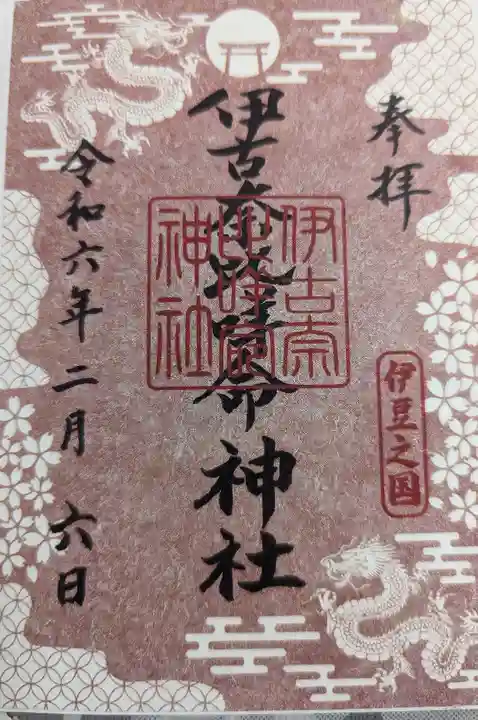 奉拝
伊豆之国
伊古奈比咩命神社
伊古奈
比咩命
神社
令和六年二月六日